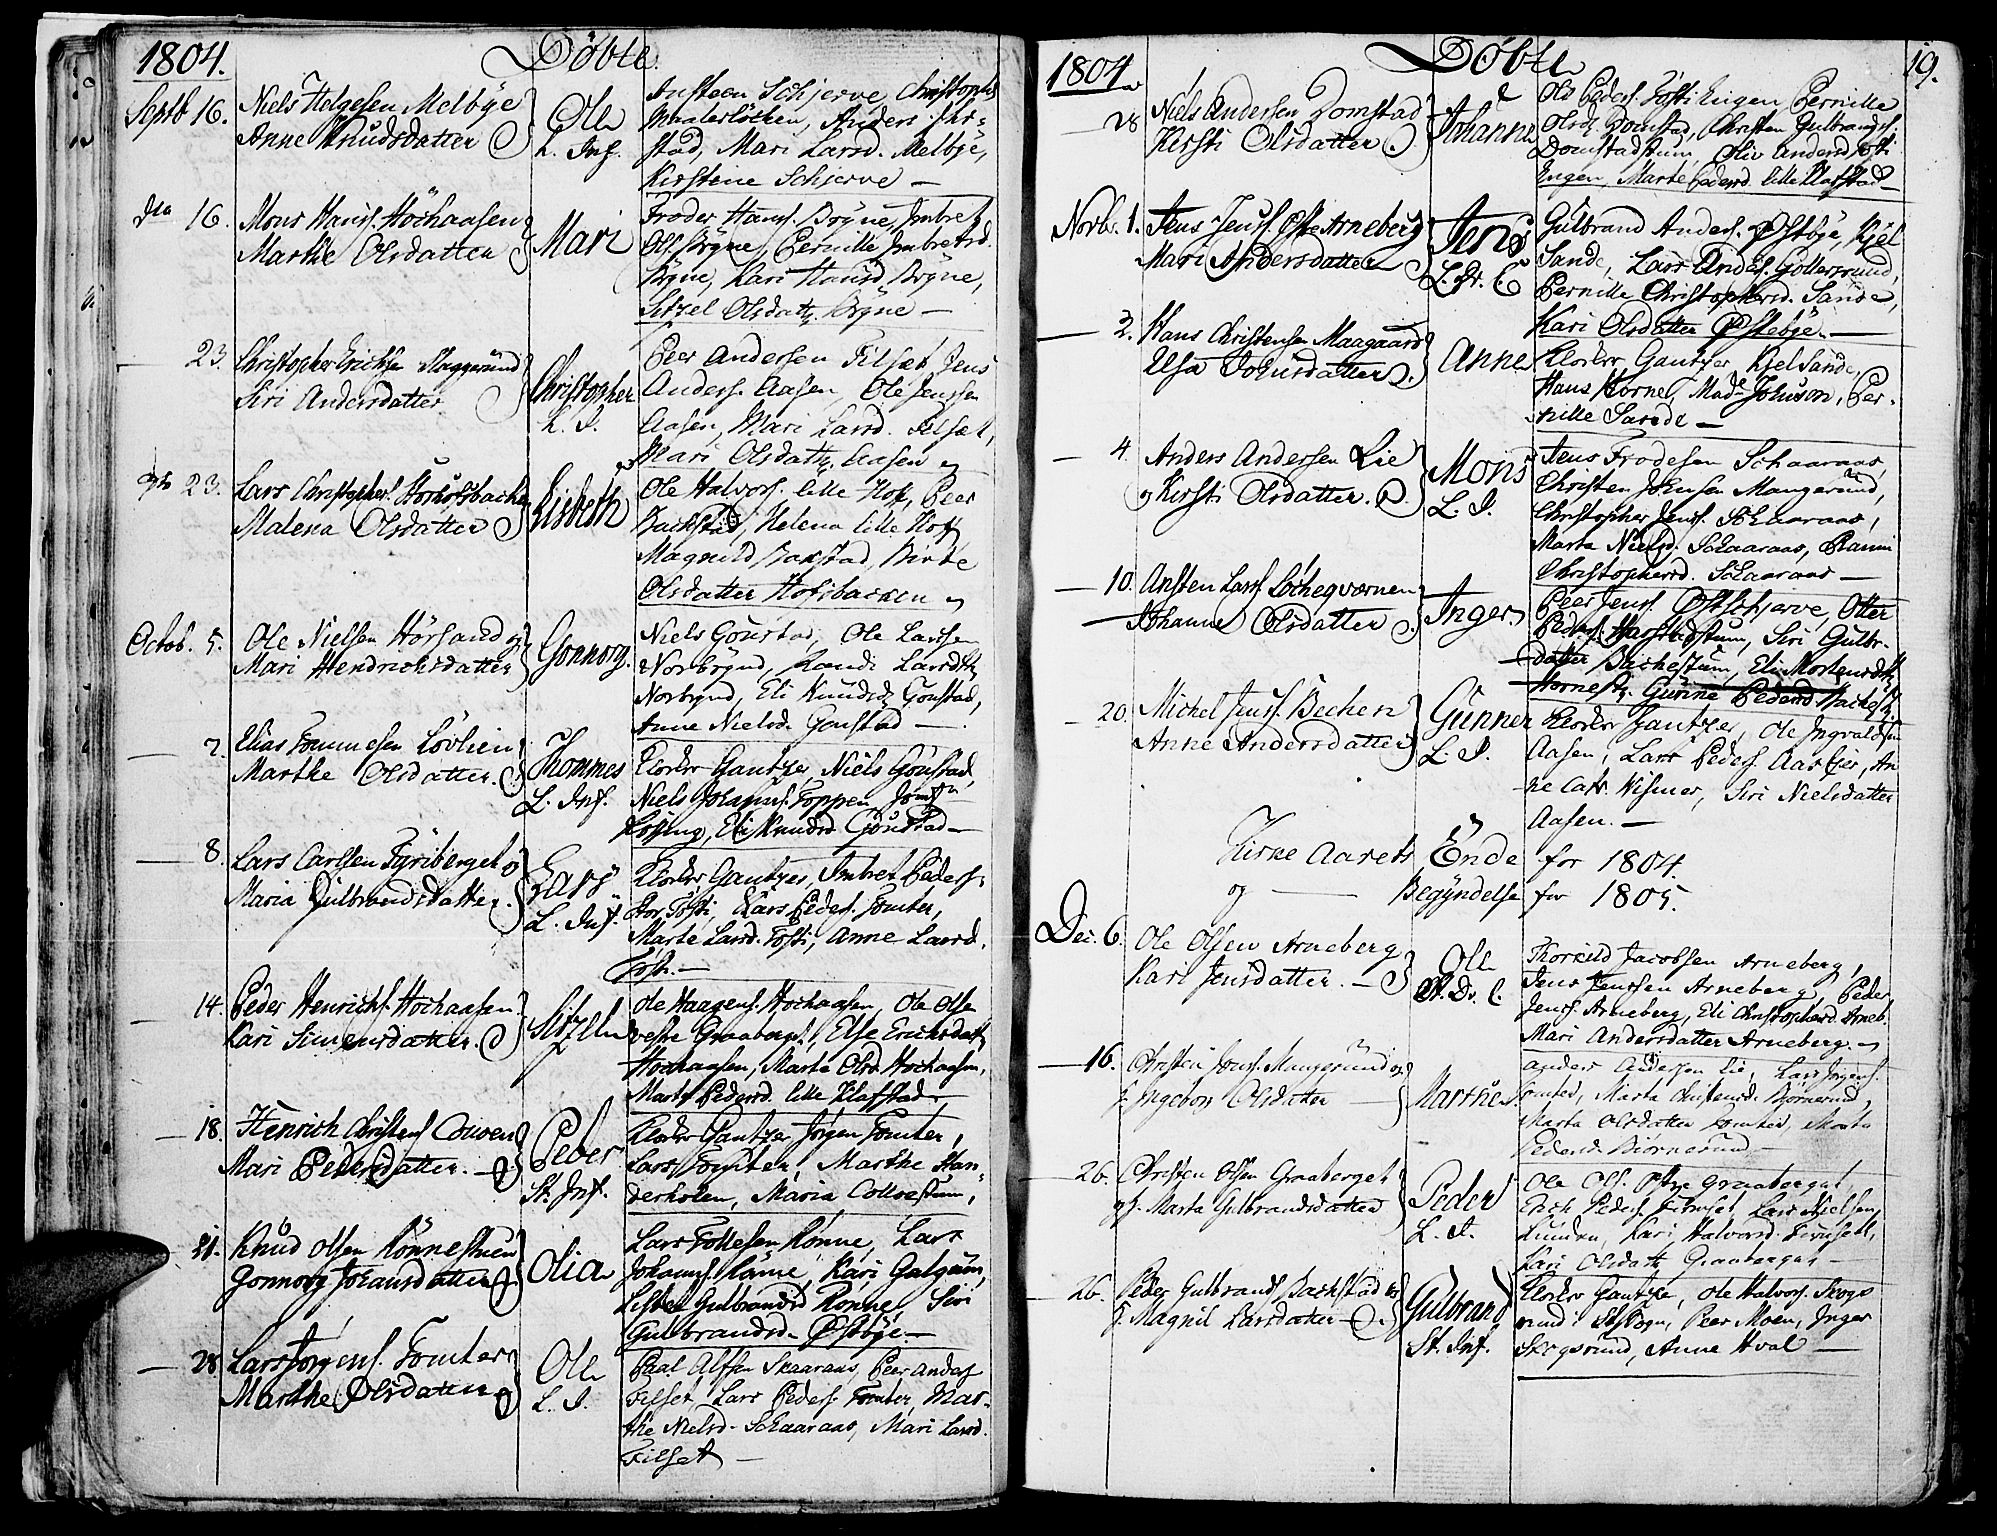 1804. Döbte
Septb 16. Niels Helgesen Melbÿe
Anne Knudsdatter
Ole
L. Inf.
Ansteen Schjerve, Christopher
Maalerlöcken, Anders
stad, Mari Larsd. Melbÿe,
Kirstene Schjerve —
dto 16. Mons Hans. Hörhaasen
Marthe Olsdatter
Mari
Froder Hans. Brÿne, Imbret
Ols. Brÿne, Pernille Imbretsd.
Brÿne, Kari Hansd. Brÿne,
Sitzel Olsdattr. Brÿne —
— 23. Christopher Erichsen Maggerund
Siri Andersdatter
Christopher
L. I.
Peer Andersen Filset, Jens
Anders. Aasen, Ole Jenssen
Aasen, Mari Larsd. Filset,
Mari Olsdattr. Aasen
dto 23. Lars Christophers. Hofsbachen
Malena Olsdatter
Lisbeth
Ole Halvors. lille Hof, Peer
Backstad, Helena lille Hof,
Magnild Bakstad, Birte
Olsdatter Hofsbacken
Octob. 5. Ole Nielsen Hörsand og
Mari Hendrichsdatter
Gonnorg.
Niels Goustad, Ole Larssen
Norbÿnd, Randi Larsdtr.
Norbÿnd, Eli Knudsdr. Goustad,
Anne Nielsd. Goustad —
— 7. Elias Tommesen Lövlien
Marthe Olsdatter.
Thommes
L. Inf.
Klocker Gautzer, Niels Goustad,
Niels Johanns. Toppen,
Eli Knudsd. Goustad —
— 8. Lars Carlsen Fyriberget og
Maria Gulbrandsdatter.
Lars
L. Inf.
Klocker Gautzer, Imbret Peders.
Stor Tofti, Lars Peders. Tomter,
Marte Larsd. Tofti, Anne Larsd.
Tofti. —
— 14. Peder Henrichs. Hochaasen
Kari Simensdatter.
Sitzel
Ole Haagens. Hochaasen, Ole Olse
vestre Graaberget, Else Erichsdatt.
Hochaasen, Marta Olsd. Hochaasen,
Marte Pedersd. lille Klafstad —
— 18. Henrich Christens. Couven
Mari Pedersdatter. —
Peder
St. Inf.
Klocker Gautzer, Jörgen Tomter,
Lars Tomter, Marthe Han-
derholen, Maria
— 21. Knud Olsen Rönnestuen
Gonnorg Johansdatter
Olia
Lars Tollesen Rönne, Lars
Johanns. Rönne, Kari Galgum,
Lisbet Gulbrandsd. Rönne, Siri
Gulbrandsd. Östbÿe —
— 28. Lars Jörgens. Tomter
Marthe Olsdatter
Ole
L. I.
Paal Alfsen Skaaraas, Peer Anders.
Filset, Lars Peders. Tomter, Mar-
the Nielsd. Schaaraas, Mari Larsd.
Filset —
1804 Döbte 19.
— 28 Niels Andersen Domstad
Kersti Olsdatter
Johanne
Ole Peders. Tofti Engen, Pernille
Olsd. Domstad, Christen Gulbrands.
Domstadstuen, Oliv Andersd. Tofti
Engen, Marte Pedersd. lille Klafstad
Novbr. 1. Jens Jens. Östre Arneberg
Mari Andersdatter
Jens
L. Dr. C
Gulbrand Anders. Östbÿe, Kjel
Sande, Lars Anders. Gottersrund,
Pernille Christophersd. Sande,
Kari Olsdatter Östebÿe —
— 2. Hans Christensen Maagaard
Elsa Johnsdatter
Anne
Klocker Gautzer, Kjel Sande,
Hans Horne, Made. Johnson, Per-
nille Sande —
— 4. Anders Andersen Lie
og Kirsti Olsdatter.
Mons
L. I.
Jens Frodesen Schaaraas,
Christen Johnsen Mangerund,
Christopher Jens. Skaaraas,
Marta Nielsd. Schaaraas,
Christophersd. Schaaraas —
— 10. Ansten Lars. Löcheqvernen
Johanne Olsdatter
Inger
Peer Jens. Östschjerve, Otter
Peders. Harstadstuen, Siri Gulbr.
datter Backestuen, Eli Mortensdtr.
Hornestr. Gurine Pedersd. Backest.
— 20. Michel Jens. Bechen
Anne Andersdatter
Gunner
L. I.
Klocker Gautzer, Ole Ingvaldsen
Aasen, Lars Peders. Aas Ejer, An-
ne Cath. Wismer, Siri Nielsdatter
Aasen. —
Kirke Aarets Ende for 1804.
og — Begÿndelse for 1805.
Dec. 6. Ole Olsen Arneberg
Kari Jensdatter. —
Ole
St. Dr. C.
Thorkild Jacobsen Arneberg,
Jens Jenssen Arneberg, Peder
Jenss. Arneberg, Eli Christophersd. Arneb.
Mari Andersdatter Arneberg.
— 16. Christen Jons. Mangerund og
Ingeborg Olsdatter —
Marthe
Anders Andersen Lie, Lars Jörgens.
Tomter, Marta Christensd. Börnerud,
Marta Olsdatter Tomter, Marta
Pedersd. Biörnerund —
— 26. Christen Olsen Graaberget
og h. Marta Gulbrandsdatter
Peder
L. I.
Ole Ols. Östre Graaberget,
Erich Peders. Firuset, Lars Nielsen
Lunden, Kari Halvorsd. Firuset,
Kari Olsdattr. Graaberget —
— 26. Peder Gulbrands. Backstad og
h. Magnil Larsdatter —
Gulbrand
St. Inf.
Klocker Gautze, Ole Halvors. Skogs
rund, Peer Moen, Inger
Skogsrund, Anne Hval —